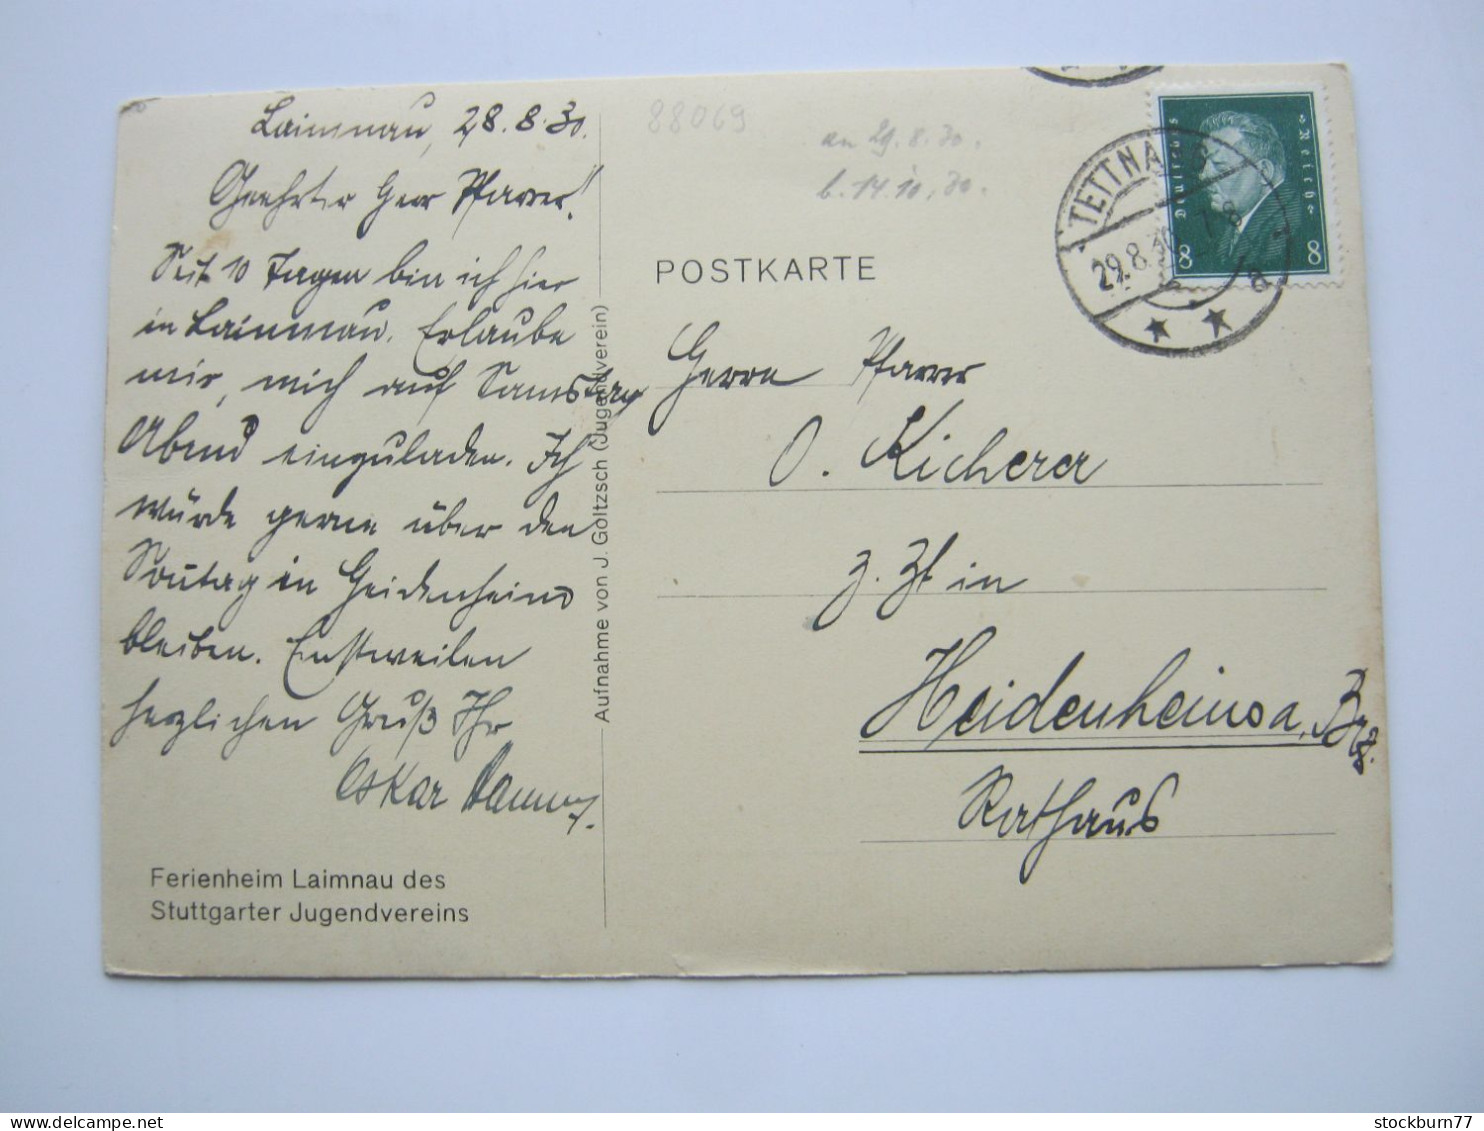 Laimnau, 28.8.30.
Geehrter Herr Pfarrer!
Seit 10 Tagen bin ich hier
in Laimnau. Erlaube
mir, mich auf Samstag
Abend einzuladen. Ich
würde gerne über den
Sonntag in Heidenheim
bleiben. Einstweilen
herzlichen Gruß Ihr
Oskar
Ferienheim Laimnau des
Stuttgarter Jugendvereins
Aufnahme von J. Goltzsch (Jugendverein)
88069
an 29.8.30.
b. 14.10.30.
POSTKARTE
Deutsches Reich
8 8
TETTNANG
29.8.30. 7-8
a
Herrn Pfarrer
O. Kicherer
z. Zt in
Heidenheim a. Brz.
Rathaus
delcampe.net
stockburn77